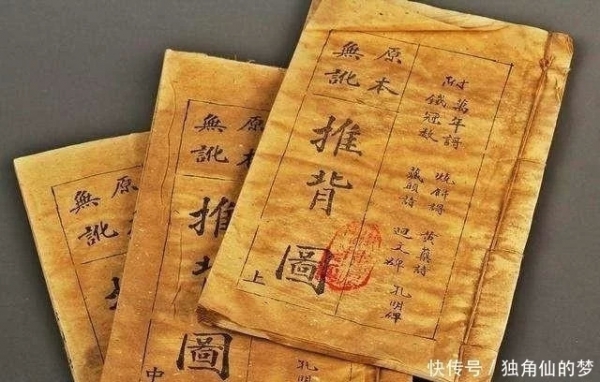 附萬年詩 燒餅詩 黃蘗詩
鐵冠數 藏頭詩 孔明碑
迴文碑
原本
無訛
推背圖
上
原本
無訛
推背圖
中
孔明碑
原本
無訛
快传号／独角仙的梦